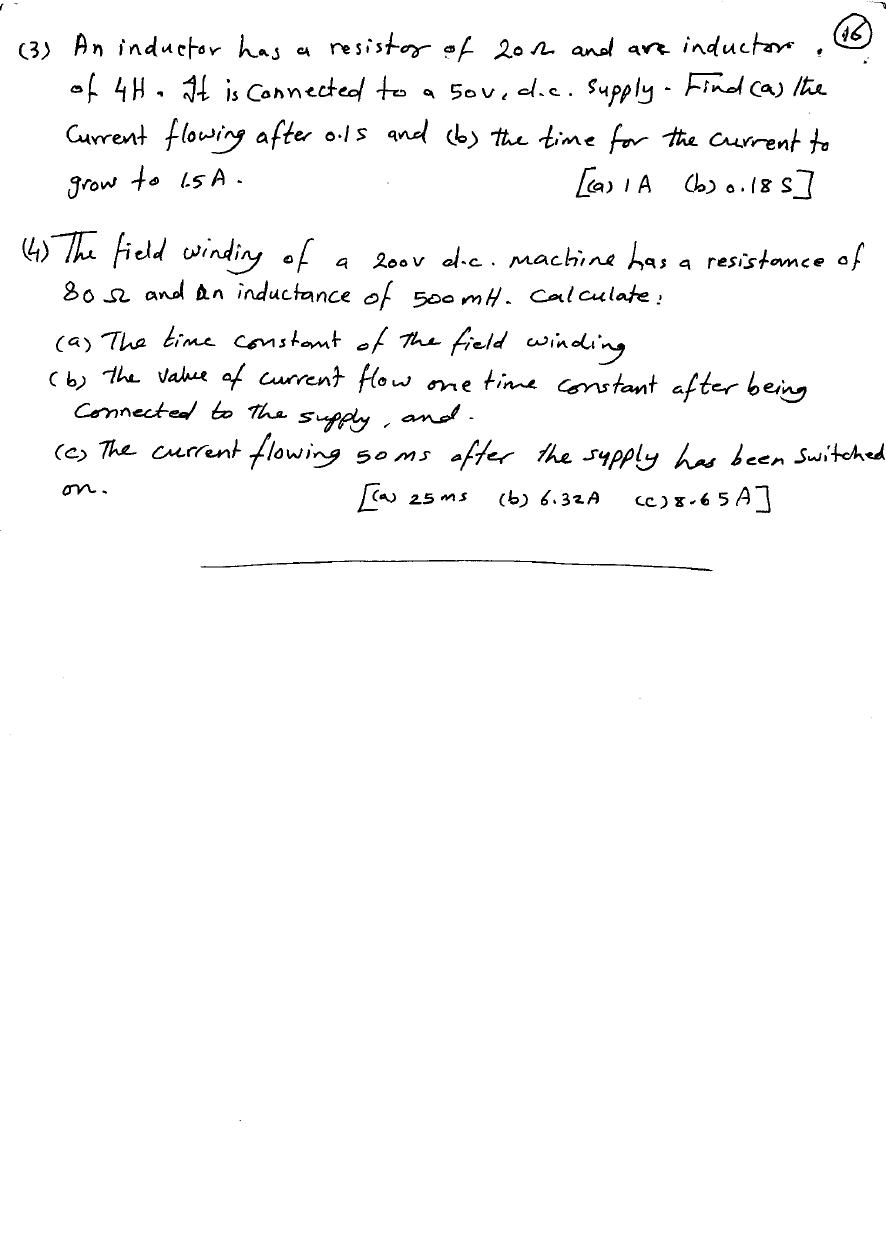 16
(3) An inductor has a resistor of 20Ω and are inductore.
of 4H. It is connected to a 50V, d.c. supply. Find (a) the
Current flowing after 0.1s and (b) the time for the current to
grow to 1.5 A. [(a) 1 A (b) 0.18 S]
(4) The field winding of a 200V d.c. machine has a resistance of
80 Ω and an inductance of 500 mH. Calculate:
(a) The time constant of the field winding
(b) The value of current flow one time constant after being
Connected to the supply, and.
(c) The current flowing 50 ms after the supply has been switched
on. [(a) 25 ms (b) 6.32A (c) 8.65 A]